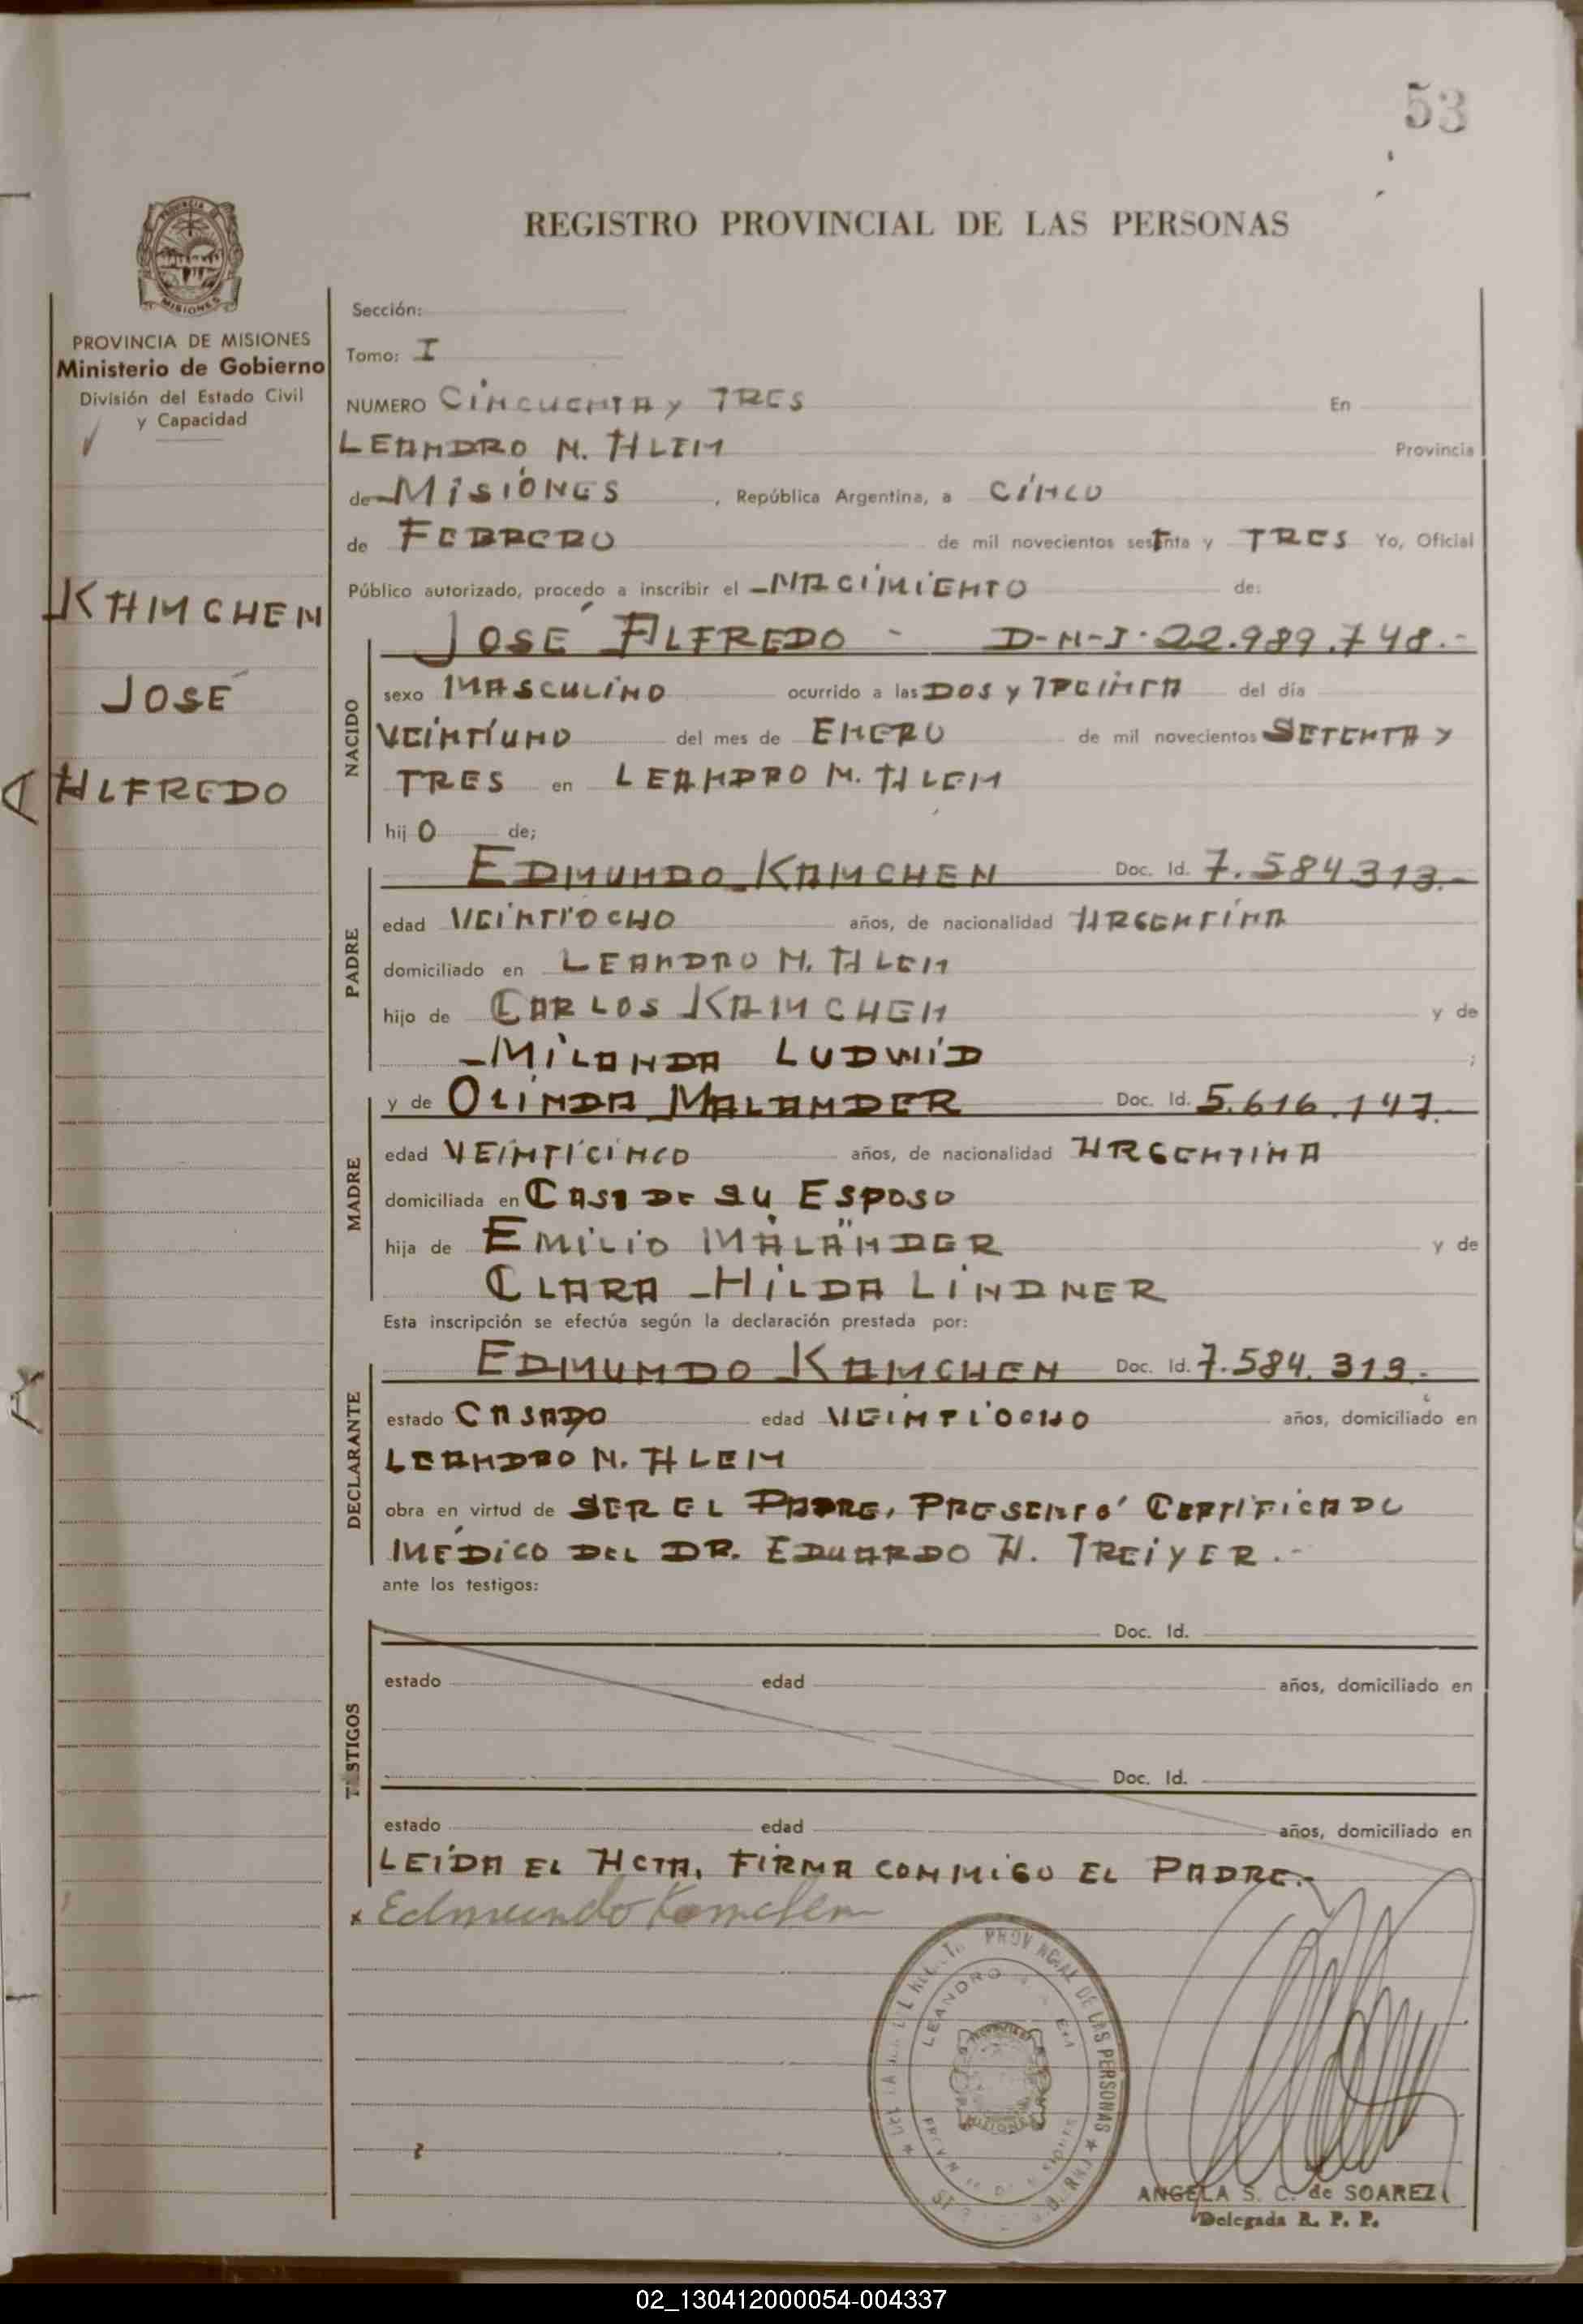 53
REGISTRO PROVINCIAL DE LAS PERSONAS
PROVINCIA DE MISIONES
Ministerio de Gobierno
División del Estado Civil
y Capacidad
KAMCHEN
JOSÉ
ALFREDO
Sección:
Tomo: I
NUMERO CINCUENTA y TRES En
LEANDRO N. ALEM Provincia
de MISIONES, República Argentina, a CINCO
de FEBRERO de mil novecientos setenta y TRES Yo, Oficial
Público autorizado, procedo a inscribir el NACIMIENTO de:
NACIDO
JOSÉ ALFREDO - D-N-I-22.989.748.-
sexo MASCULINO ocurrido a las DOS y TREINTA del día
VEINTIUNO del mes de ENERO de mil novecientos SETENTA y
TRES en LEANDRO N. ALEM
hijo de;
PADRE
EDMUNDO KAMCHEN Doc. Id. 7.584.313.-
edad VEINTIOCHO años, de nacionalidad ARGENTINA
domiciliado en LEANDRO N. ALEM
hijo de CARLOS KAMCHEN y de
MILONDA LUDWID ;
MADRE
y de OLINDA MALANDER Doc. Id. 5.616.147.
edad VEINTICINCO años, de nacionalidad ARGENTINA
domiciliada en CASA DE SU ESPOSO
hija de EMILIO MALÄNDER y de
CLARA HILDA LINDNER
Esta inscripción se efectúa según la declaración prestada por:
DECLARANTE
EDMUNDO KAMCHEN Doc. Id. 7.584.313.
estado CASADO edad VEINTIOCHO años, domiciliado en
LEANDRO N. ALEM
obra en virtud de SER EL PADRE, PRESENTÓ CERTIFICADO
MÉDICO DEL DR. EDUARDO H. TREIYER.-
ante los testigos:
TESTIGOS
Doc. Id.
estado edad años, domiciliado en
Doc. Id.
estado edad años, domiciliado en
LEIDA EL ACTA, FIRMA CONMIGO EL PADRE.-
x Edmundo Kamchen
DE LAS PERSONAS
LEANDRO
ANGELA S. C. de SOAREZ
Delegada R. P. P.
02_130412000054-004337